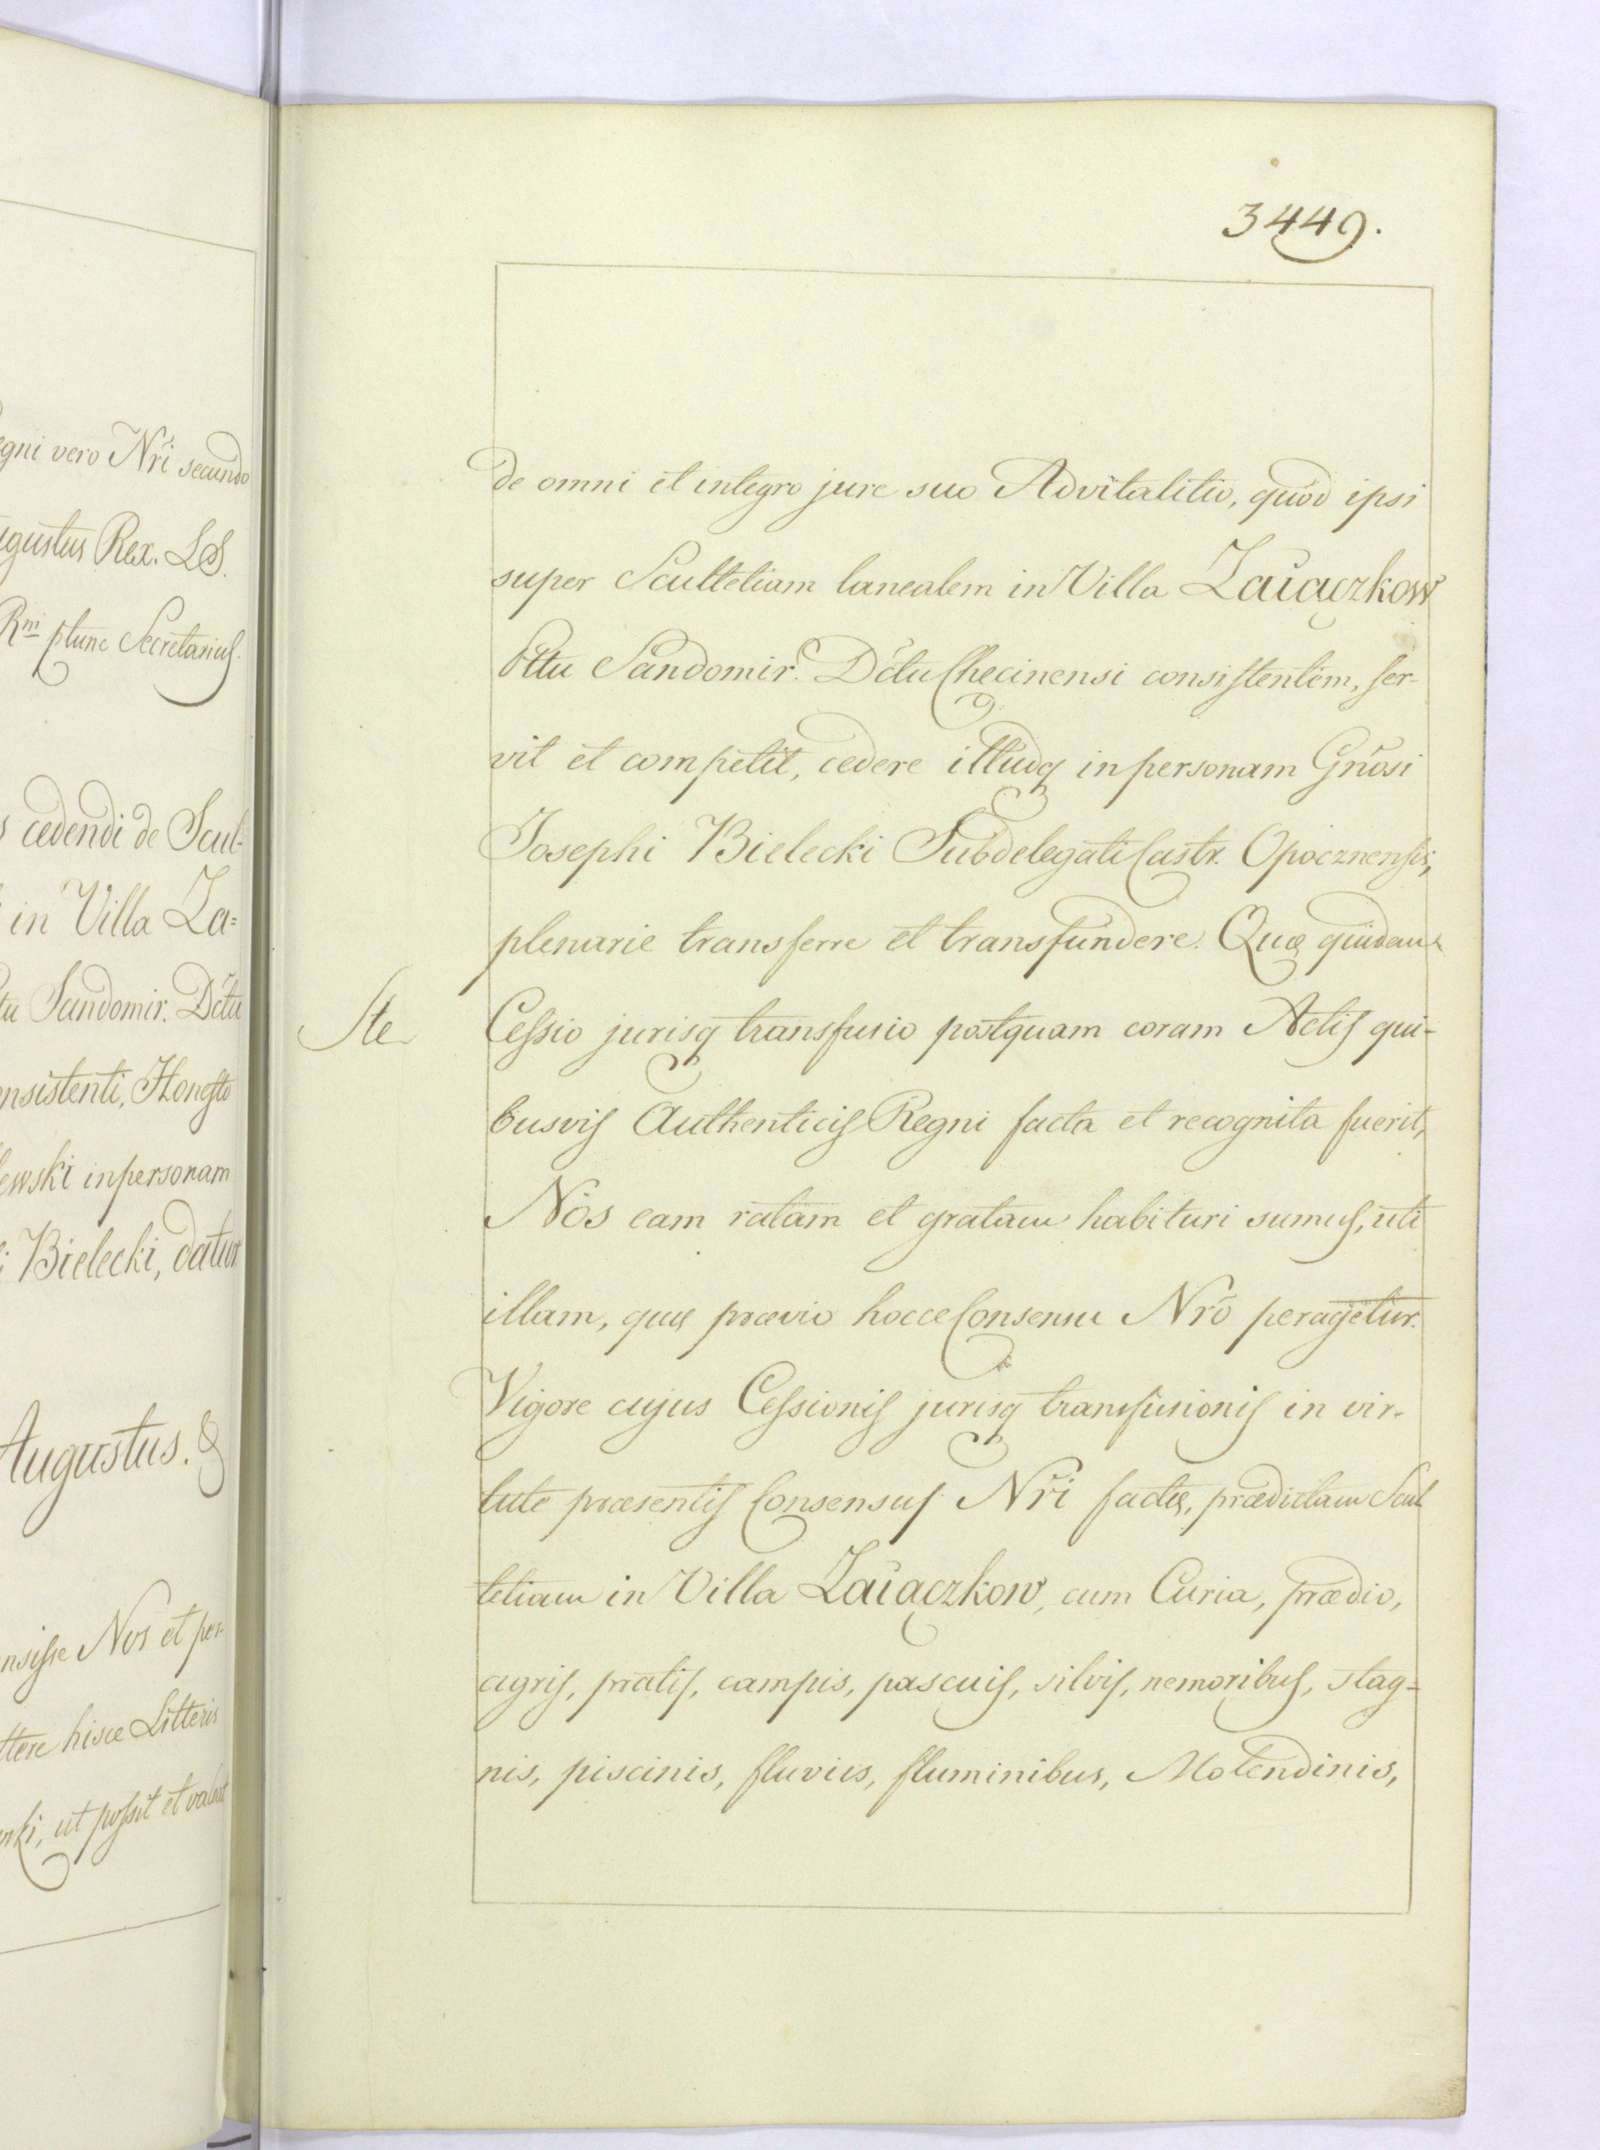 3449.
egni vero Nři secundo
ugustus Rex. LS.
Rni ptunc Secretarius.
s cedendi de Scul-
in Villa Za=
tu Sandomir. Dčtu
onsistenti, Honesto
lewski in personam
i Bielecki, datur
Augustus. &
nsisse Nos et per-
ttere hisce Litteris
enski, ut possit et valeat
Ste
de omni et integro jure suo Advitalitio, quod ipsi
super Scultetiam lanealem in Villa Zaiączkow
Pttu Sandomir. Dčtu Checinensi consistentem, ser-
vit et competit, cedere illudq in personam Gnŏsi
Josephi Bielecki Subdelegati Castr. Opocznensis,
plenarie transferre et transfundere. Quæ quidem
Cessio jurisq transfusio postquam coram Actis qui-
busvis Authenticis Regni facta et recognita fuerit,
Nos eam ratam et gratam habituri sumus, uti
illam, quæ prævio hocce Consensu Nrŏ peragetur.
Vigore cujus Cessionis jurisq transfusionis in vir-
tute præsentis Consensus Nři factæ, prædictam Scul
tetiam in Villa Zaiączkow, cum Curia, prædio,
agris, pratis, campis, pascuis, silvis, nemoribus, stag=
nis, piscinis, fluviis, fluminibus, Molendinis,